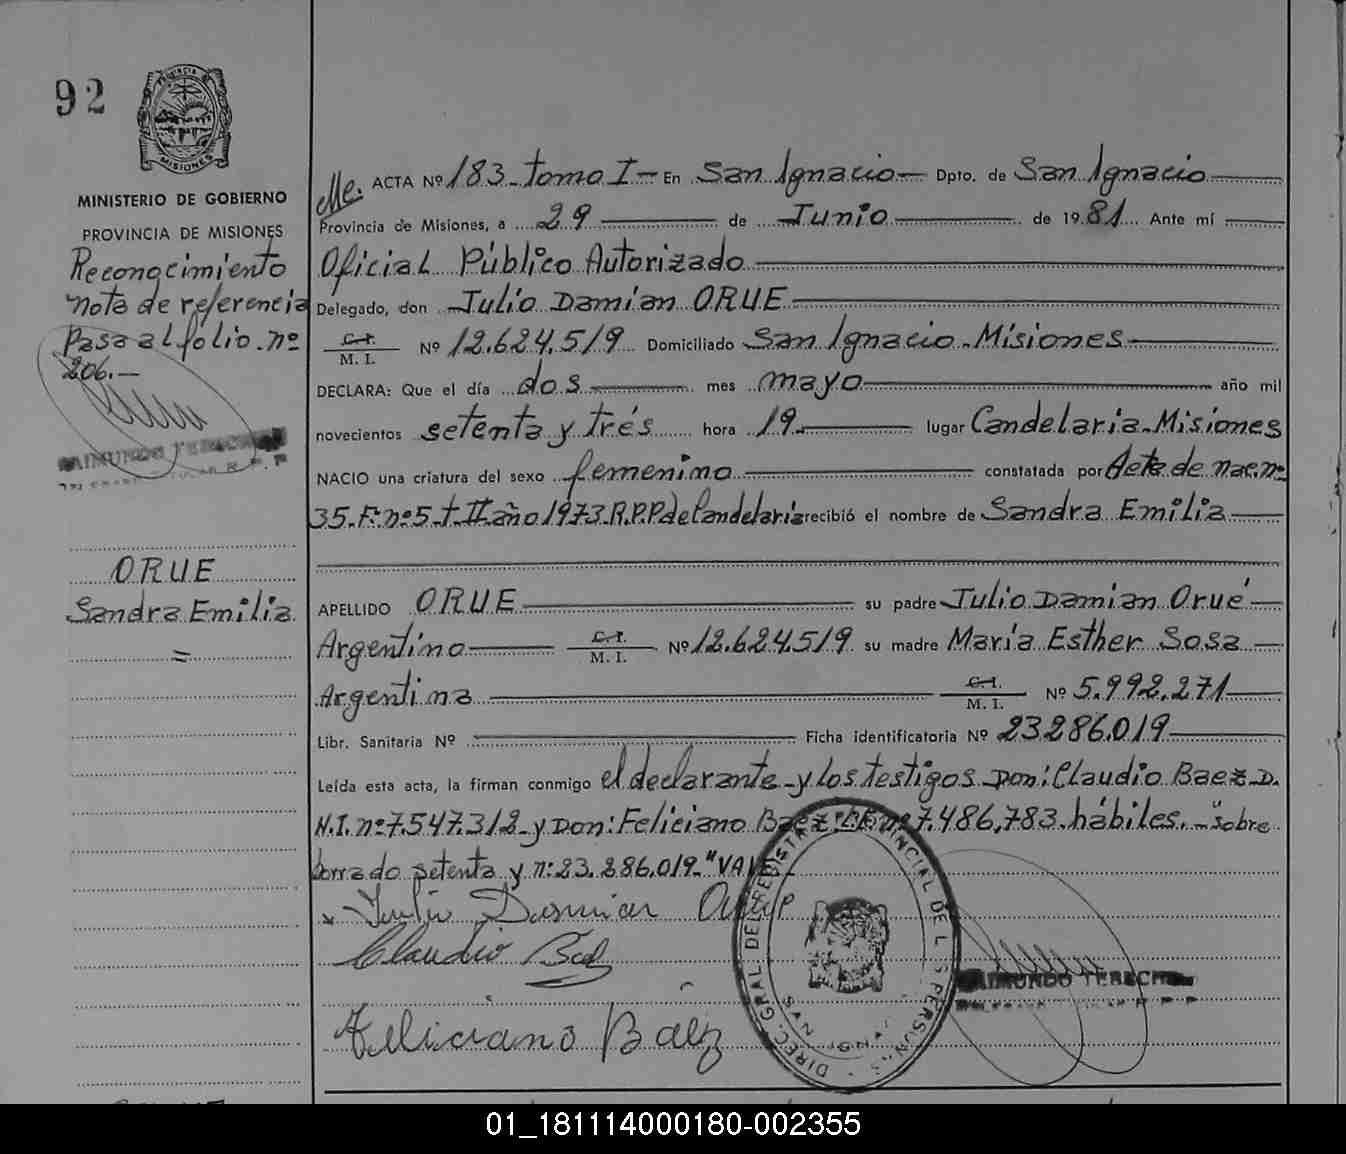 92
PROVINCIA DE
MISIONES
MINISTERIO DE GOBIERNO
PROVINCIA DE MISIONES
Reconocimiento
nota de referencia
Pasa al folio nº
206.—
RAIMUNDO TERECH
ORUE
Sandra Emilia
=
Me. ACTA Nº 183 tomo I - En San Ignacio - Dpto. de San Ignacio
Provincia de Misiones, a 29 de Junio de 1981 Ante mí
Oficial Público Autorizado
Delegado, don Julio Damian ORUE
C.I. / M. I. Nº 12.624.519 Domiciliado San Ignacio - Misiones
DECLARA: Que el día dos mes mayo año mil
novecientos setenta y trés hora 19 lugar Candelaria - Misiones
NACIO una criatura del sexo femenino constatada por Acta de nac. nº
35 F. nº 5 t II año 1973 R.P.P de Candelaria recibió el nombre de Sandra Emilia
APELLIDO ORUE su padre Julio Damian Orué
Argentino C.I. / M. I. Nº 12.624.519 su madre María Esther Sosa
Argentina C.I. / M. I. Nº 5.992.271
Libr. Sanitaria Nº Ficha identificatoria Nº 23286.019
Leída esta acta, la firman conmigo el declarante y los testigos Don: Claudio Baez D.
N.I. nº 7.547.312 y Don: Feliciano Baez L.E. nº 7.486.783 hábiles. - "sobre
borrado setenta y nº: 23.286.019. "VALE.
Julio Damian Orue
Claudio Baez
Feliciano Baez
DIREC. GRAL. DEL REGISTRO PROVINCIAL DE L S PERSONAS
SAN IGNACIO
RAIMUNDO TERECH
01_181114000180-002355